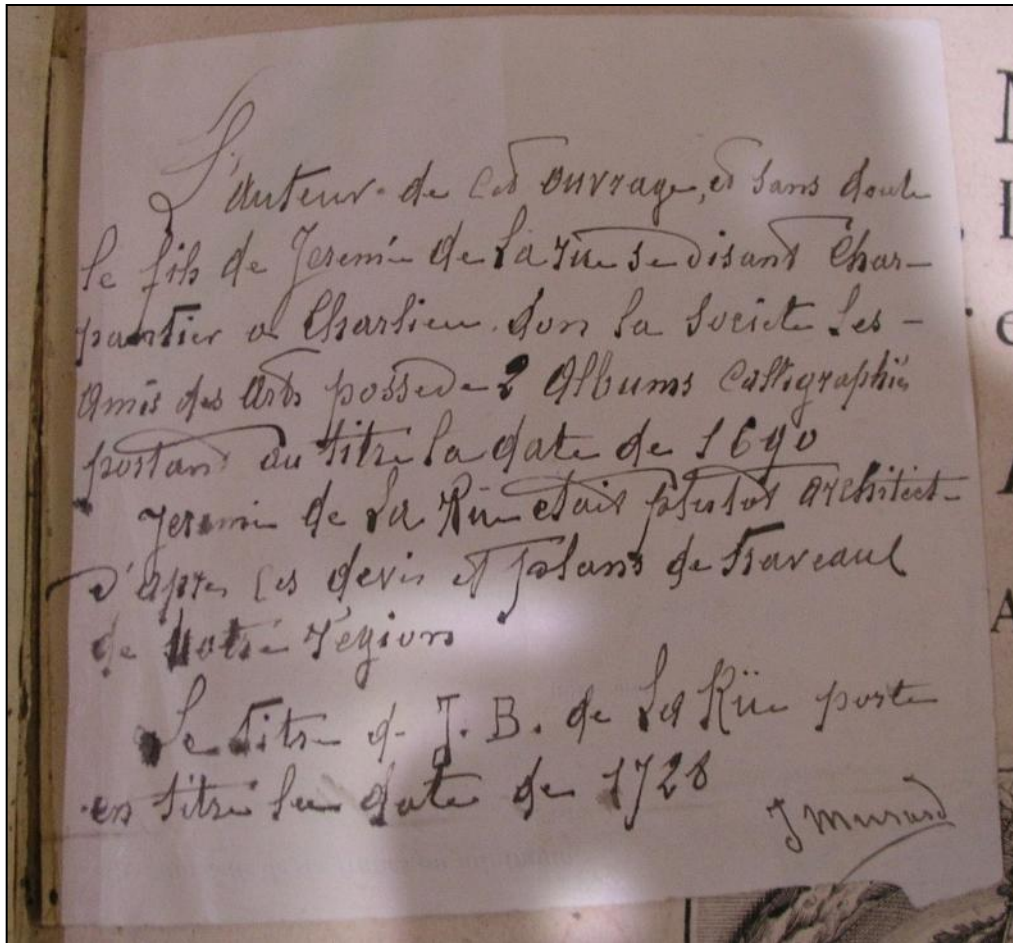 L'auteur de cet ouvrage, et sans doute
le fils de Jeremie de la rüe se disant Char-
pantier a Charlieu don la Societe les-
amis des Arts possede 2 Albums Calligraphiés
portant au titre la date de 1690
Jeremie de La Rüe etait plutot architect-
d'apres ces devis et plans de traveaul
de notre région
Le titre de J. B. de La Rüe porte
en titre la date de 1728
J Murard